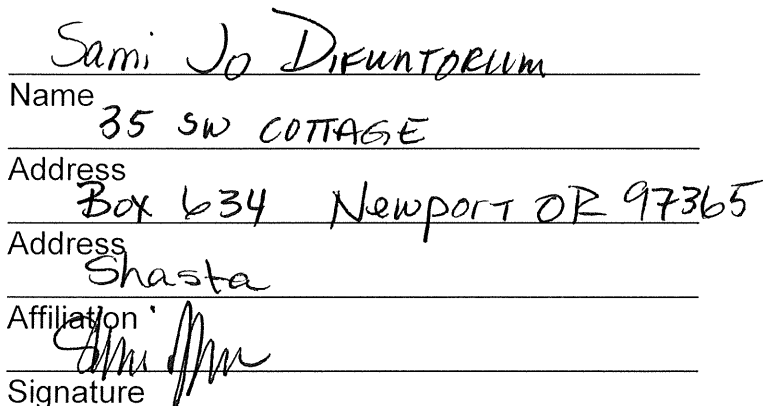 Sami Jo DiFuntorum
Name
35 SW COTTAGE
Address
Box 634 Newport OR 97365
Address
Shasta
Affiliation
Signature